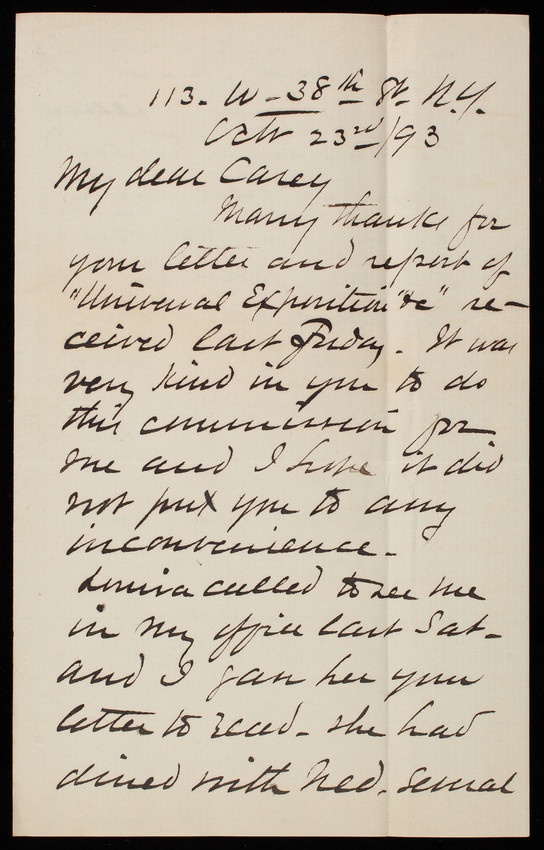 113. W - 38th St. N.Y.
Oct 23rd/93
My dear Casey
Many thanks for
your letter and report of
"Universal Exposition "&c" re-
ceived last Friday. It was
very kind in you to do
this commission for
me and I hope it did
not put you to any
inconvenience.
Louisa called to see me
in my office last Sat-
and I gave her your
letter to read - she had
dined with Ned. several